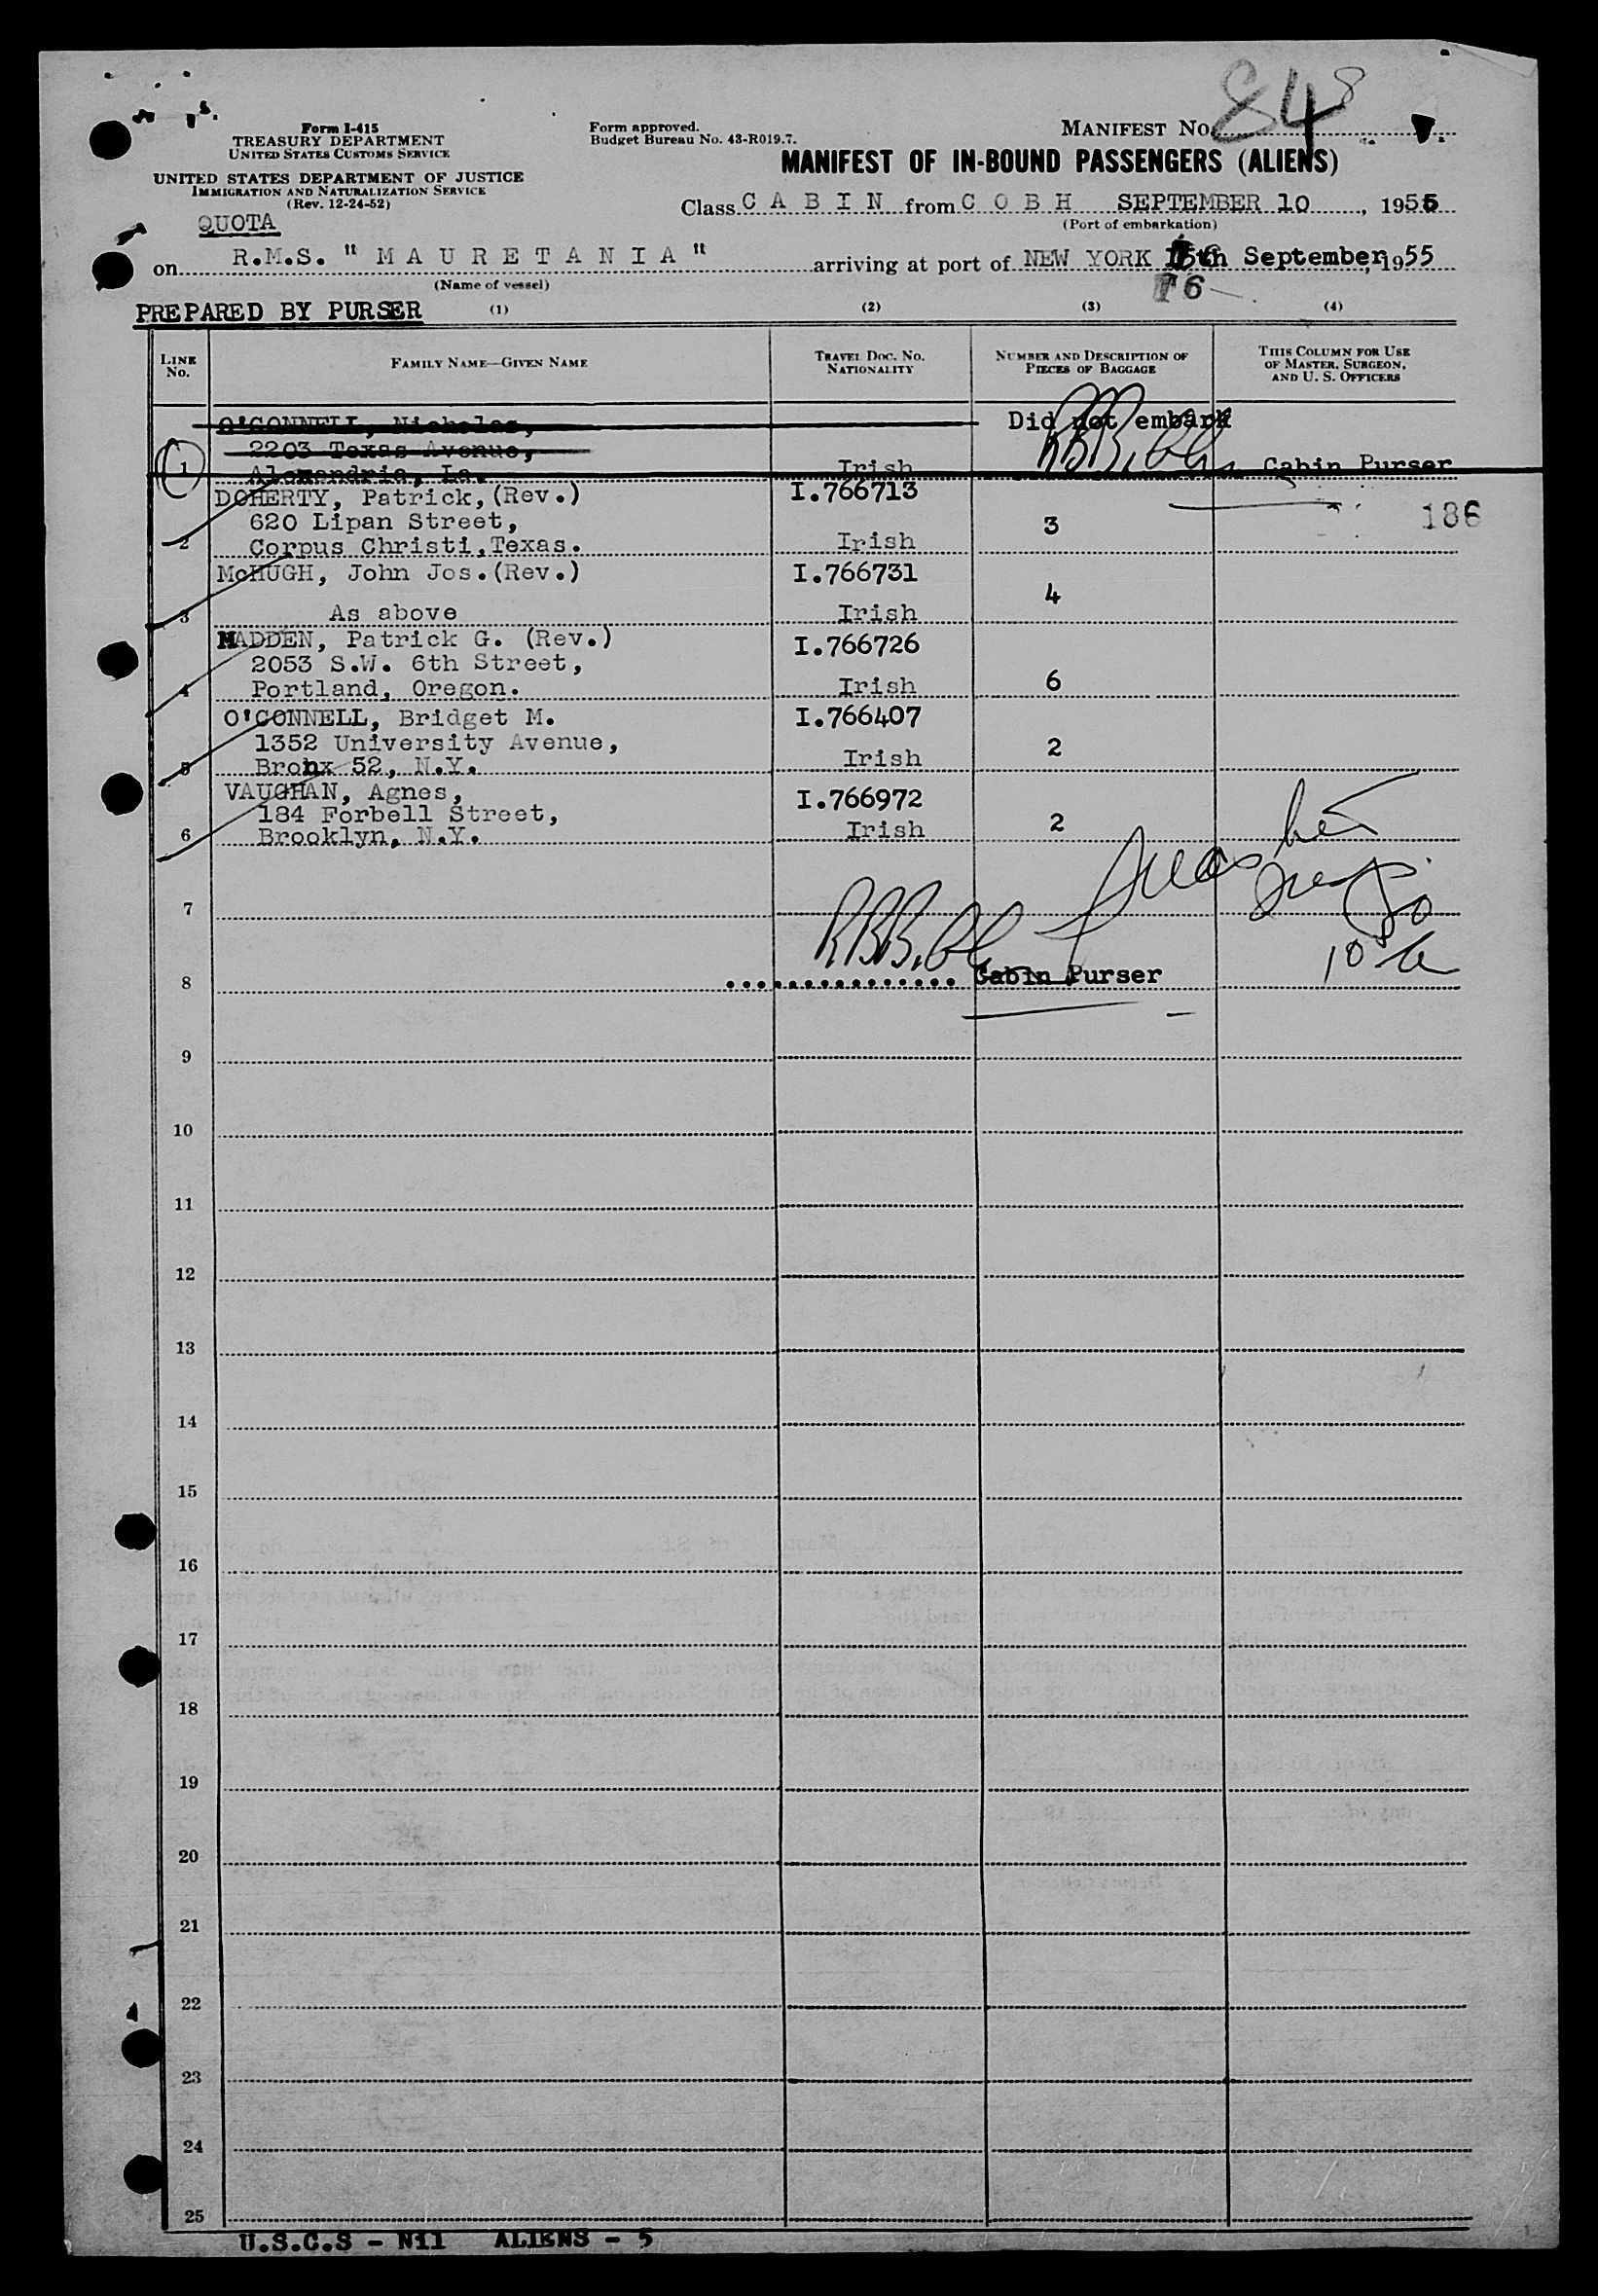 848
Form I-415
TREASURY DEPARTMENT
UNITED STATES CUSTOMS SERVICE
UNITED STATES DEPARTMENT OF JUSTICE
IMMIGRATION AND NATURALIZATION SERVICE
(Rev. 12-24-52)
QUOTA
Form approved.
Budget Bureau No. 43-R019.7.
MANIFEST NO.
MANIFEST OF IN-BOUND PASSENGERS (ALIENS)
Class CABIN from COBH SEPTEMBER 10, 1955
(Port of embarkation)
on R.M.S. "MAURETANIA" arriving at port of NEW YORK 16th September, 1955
(Name of vessel)
16
PREPARED BY PURSER (1) (2) (3) (4)
LINE No. FAMILY NAME—GIVEN NAME TRAVEL DOC. NO. NATIONALITY NUMBER AND DESCRIPTION OF PIECES OF BAGGAGE THIS COLUMN FOR USE OF MASTER, SURGEON, AND U. S. OFFICERS
O'CONNELL, Nicholas, Did not embark
2203 Texas Avenue,
1 Alexandria, La. Irish Cabin Purser
DOHERTY, Patrick, (Rev.) I.766713 186
620 Lipan Street, 3
2 Corpus Christi, Texas. Irish
McHUGH, John Jos. (Rev.) I.766731
4
3 As above Irish
MADDEN, Patrick G. (Rev.) I.766726
2053 S.W. 6th Street,
4 Portland, Oregon. Irish 6
O'CONNELL, Bridget M. I.766407
1352 University Avenue, 2
5 Bronx 52, N.Y. Irish
VAUGHAN, Agnes, I.766972
184 Forbell Street, 2
6 Brooklyn, N.Y. Irish
7
8 Cabin Purser
9
10
11
12
13
14
15
16
17
18
19
20
21
22
23
24
25
U.S.C.S - Nil ALIENS - 5